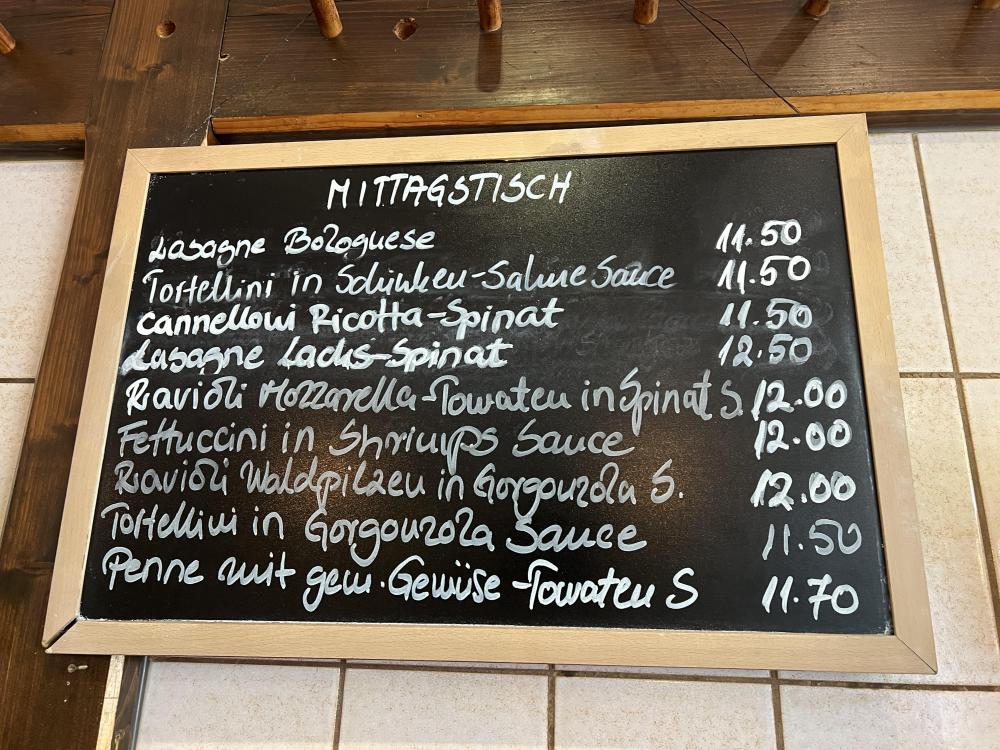 MITTAGSTISCH
Lasagne Bolognese 11.50
Tortellini in Schinken-Sahne Sauce 11.50
Cannelloni Ricotta-Spinat 11.50
Lasagne Lachs-Spinat 12.50
Ravioli Mozzarella-Tomaten in Spinat S. 12.00
Fettuccini in Shrimps Sauce 12.00
Ravioli Waldpilzen in Gorgonzola S. 12.00
Tortellini in Gorgonzola Sauce 11.50
Penne mit gem. Gemüse-Tomaten S 11.70